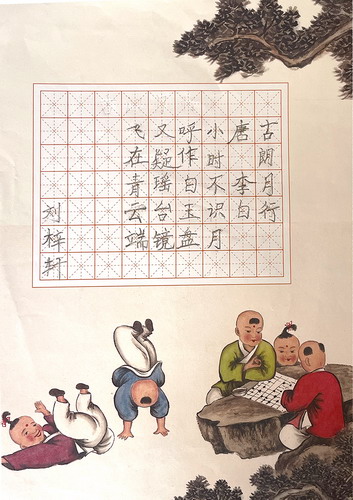 古朗月行
唐 李白
小时不识月
呼作白玉盘
又疑瑶台镜
飞在青云端
刘梓轩